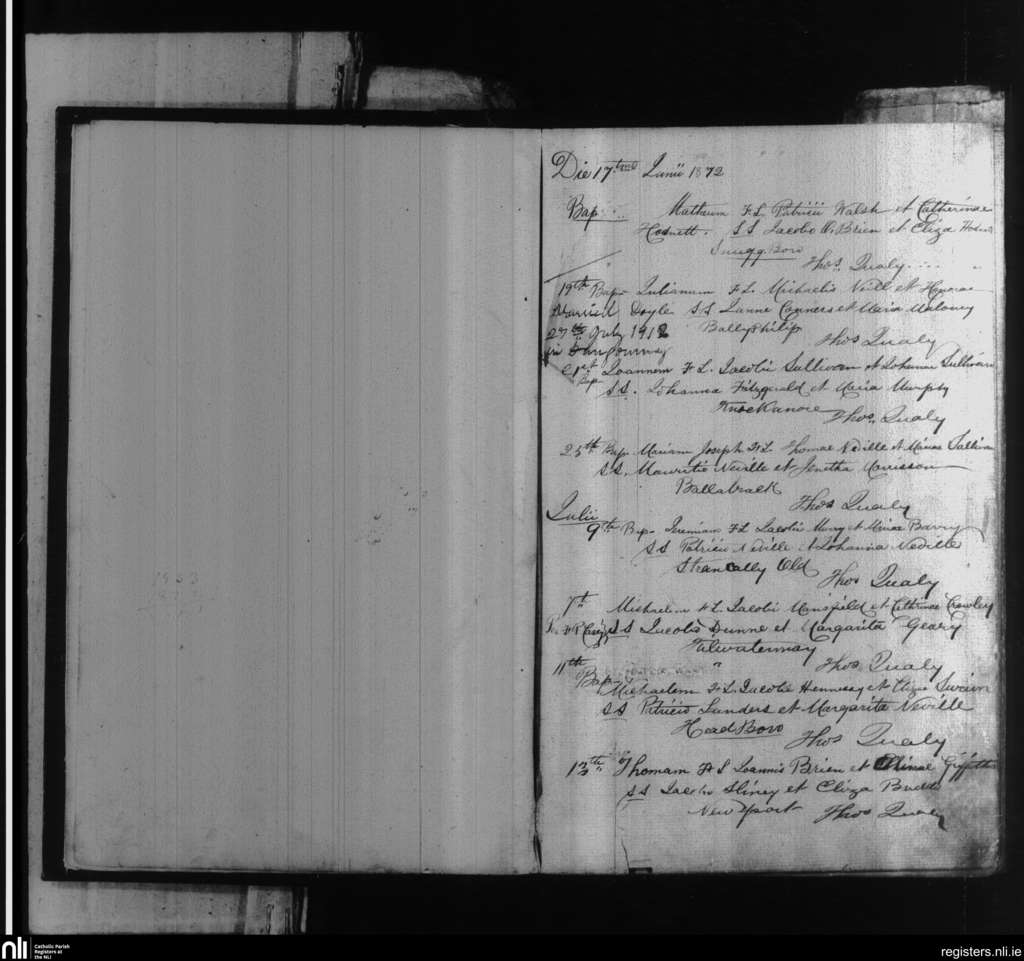 Die 17 Junii 1872
Bap. Mathaeum F L Patricii Walsh et Catherinae
Hosnett. S S Jacobo O'Brien et Eliza
Snugg Boro
Thos. Qualy
19th Bap. Julianum F L. Michaelis Neill et Honorae
married Doyle S S Connors et Maria Maloney
27th July 1912 Ballyphilip
Thos Qualy
in Dungourney
21st Joannem F L. Jacobi Sullivan et Johanna Sullivan
Bap
S S. Johanna Fitzgerald et Maria Murphy
Knockanore Thos. Qualy
25th Bap. Mariam Joseph F L Thomae Neville et Mariae Sullivan
S S. Mauritio Neville et
Thos Qualy
Julii
9th Bap. F L Jacobi et Mariae Barry
S S Patricio Neville et Johanna Neville
Strancally Old
Thos Qualy
7th Michaelem F L Jacobi Mansfield et Crowley
S S Jacobo Dunne et Margarita Geary
Thos. Qualy
11th
Bap. Michaelem F L. Jacobi Hennessy et
S S Patricio Landers et Margarita Neville
Head Boro
Thos Qualy
13th Thomam F L Joannis Brien et
S S Jacobo Hiney et Eliza
New Yoark Thos Qualy
nli
Catholic Parish
Registers at
the NLI
registers.nli.ie